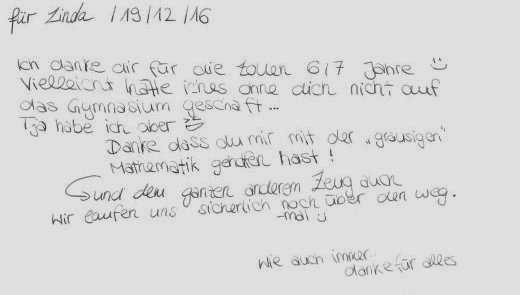 für Linda /19/12/16
Ich danke dir für die tollen 6/7 Jahre
Vielleicht hätte ich es ohne dich nicht auf
das Gymnasium geschaft...
Tja habe ich aber
Danke dass du mir mit der „grausigen"
Mathematik geholfen hast!
und dem ganzen anderem Zeug auch
Wir laufen uns sicherlich noch über den weg.
-mal
Wie auch immer..
danke für alles